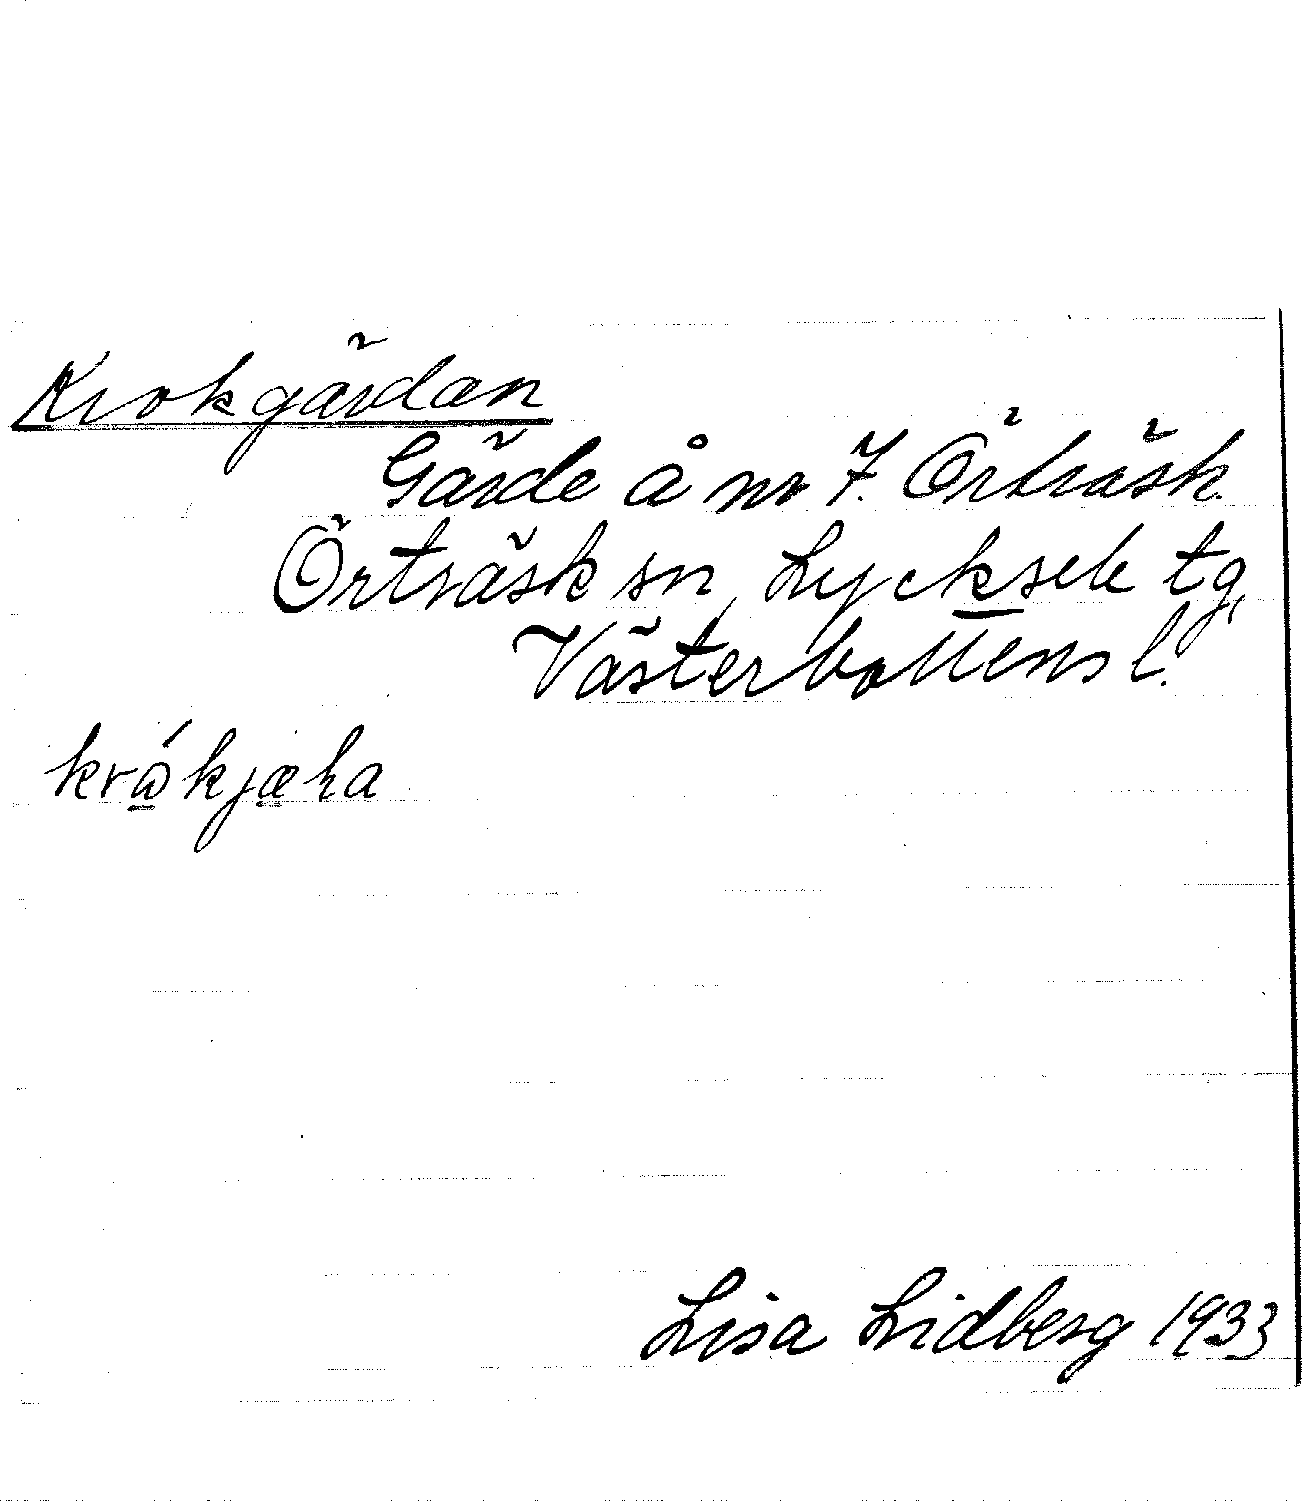 Krokgärdan
Gärde å nr 7. Örträsk.
Örträsk sn, Lycksele tg,
Västerbottens l.
Lisa Lidberg 1933